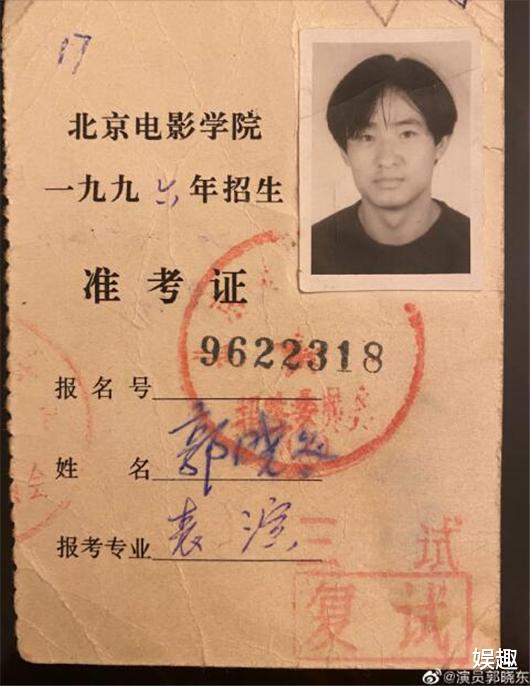 17
北京电影学院
一九九六年招生
准考证
9622318
报名号
姓 名 郭晓冬
报考专业 表演
三试
复试
娱趣
@演员郭晓东